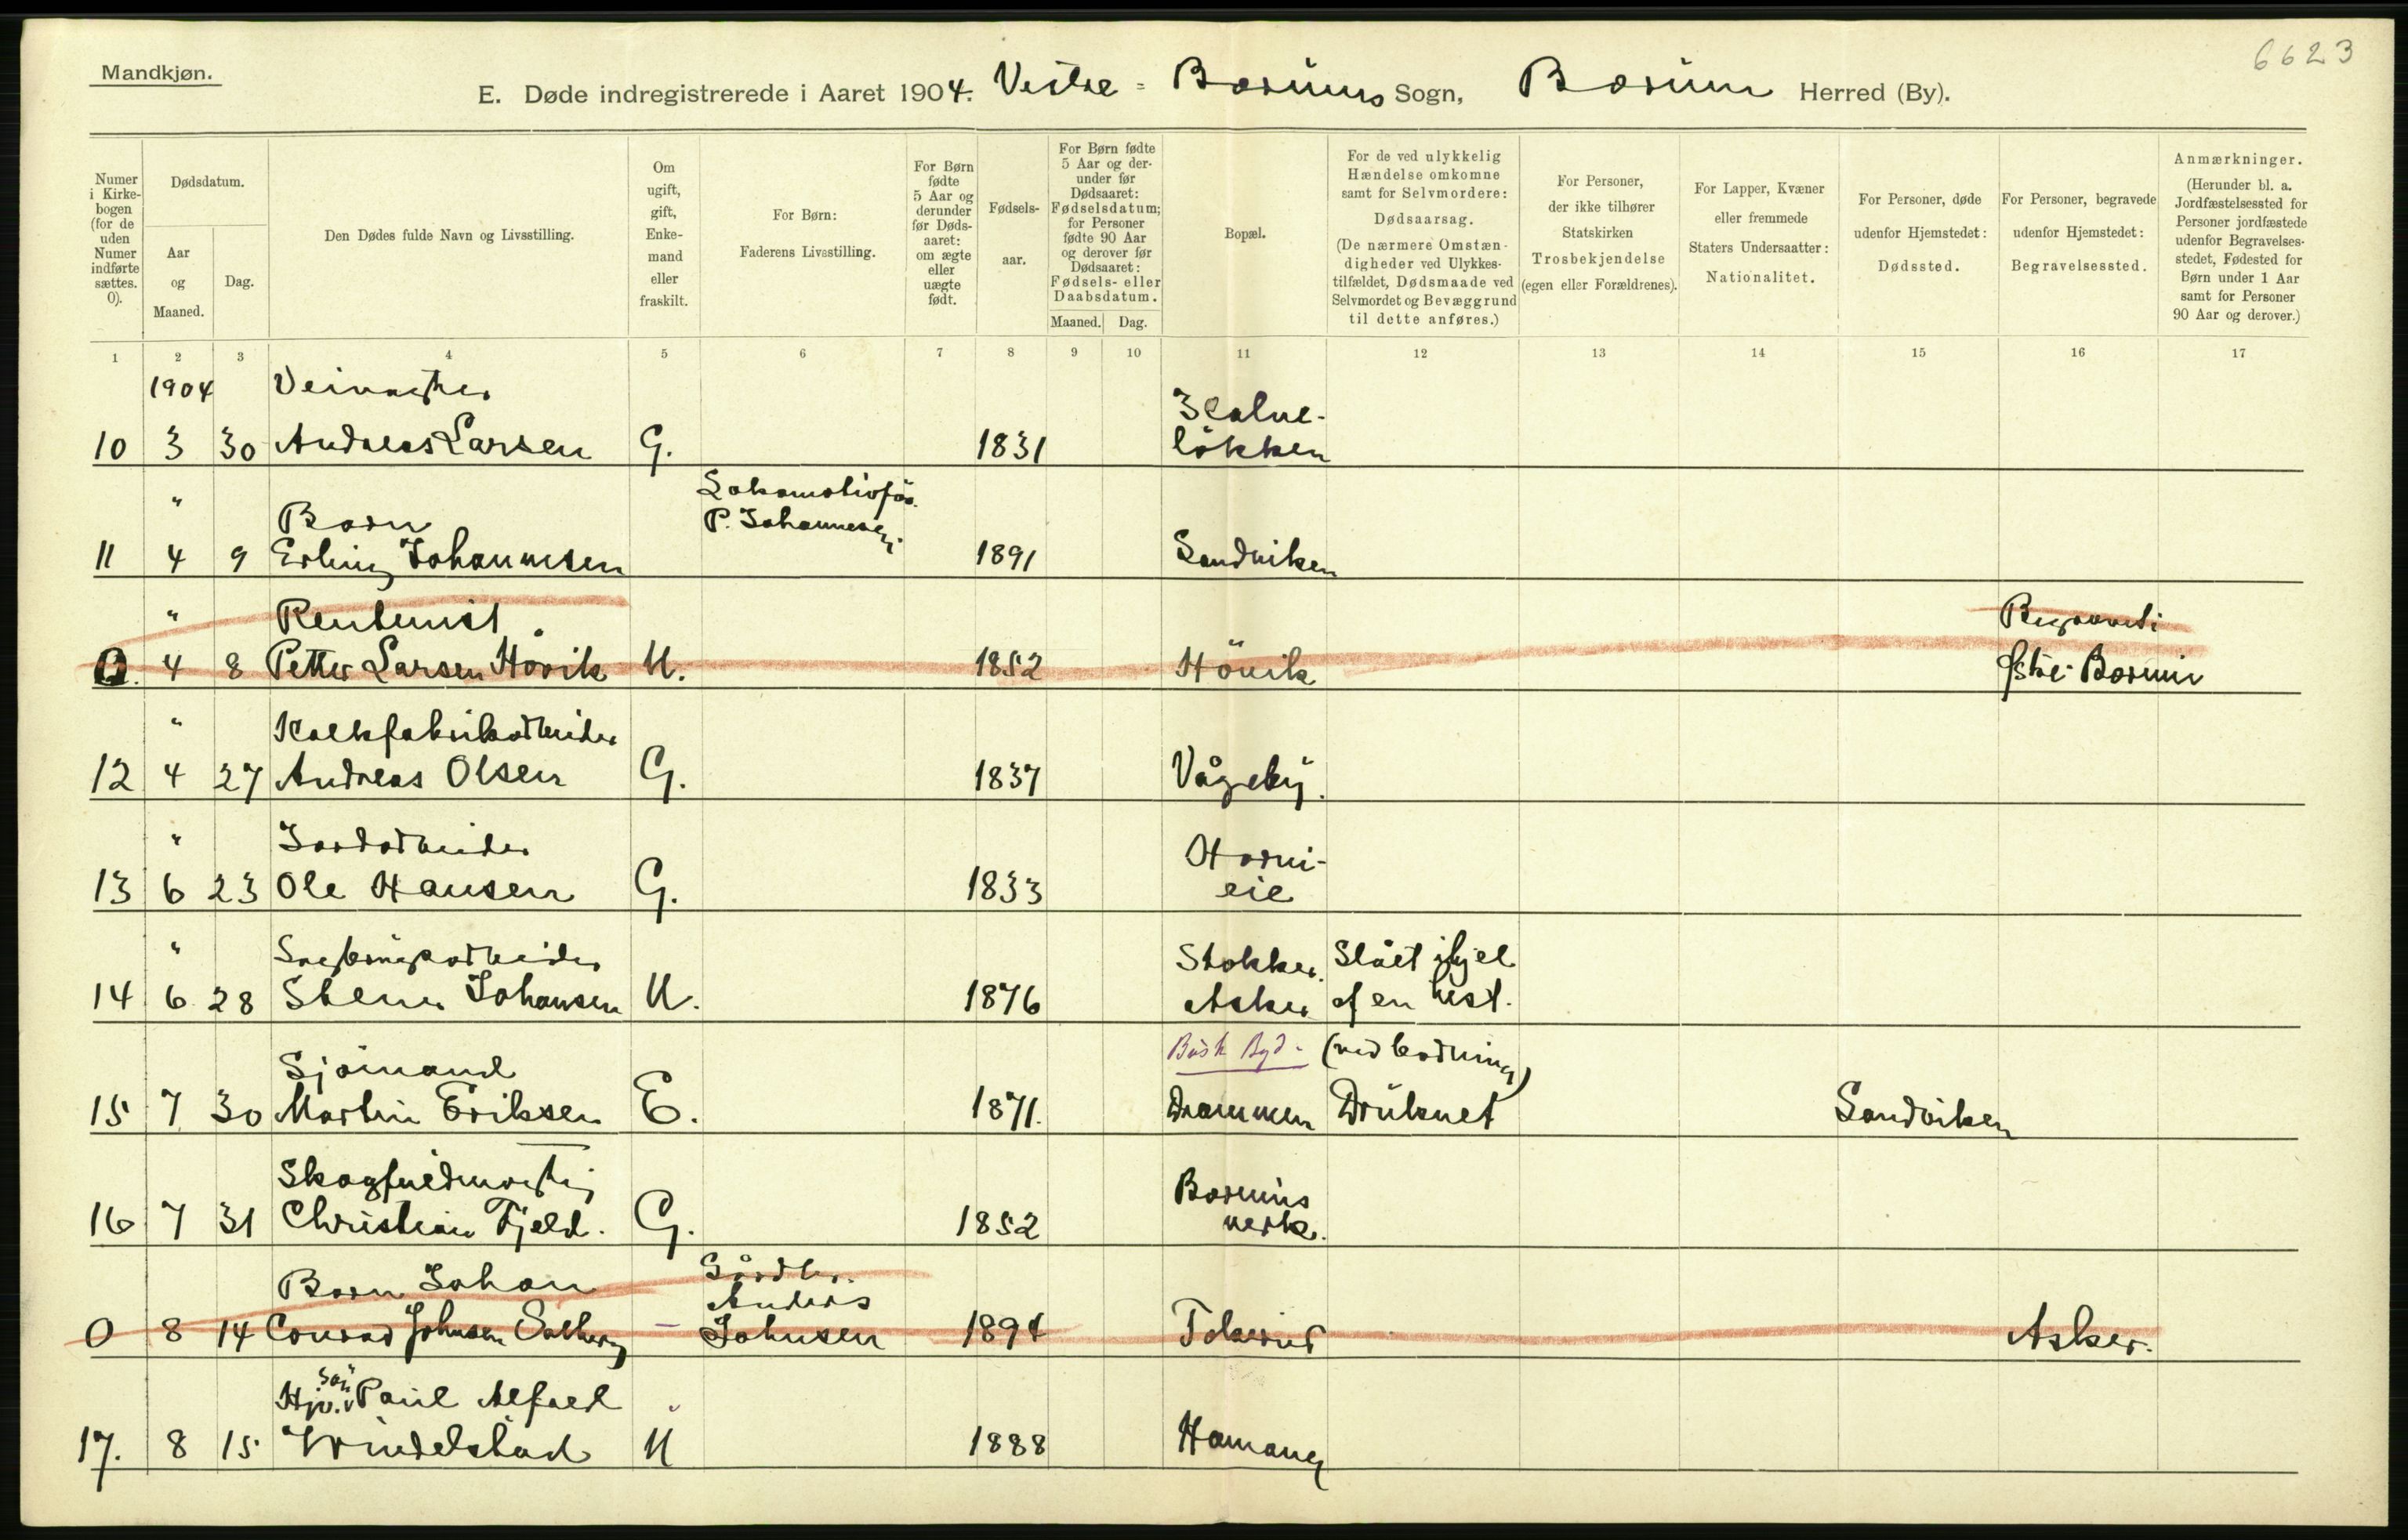 6623
Mandkjøn.
E. Døde indregistrerede i Aaret 1904. Vestre = Bærums Sogn, Bærum Herred (By).
Numer i Kirkebogen (for de uden Numer indførte sættes. 0).
Dødsdatum.
Aar og Maaned.
Dag.
Den Dødes fulde Navn og Livsstilling.
Om ugift, gift, Enkemand eller fraskilt.
For Børn: Faderens Livsstilling.
For Børn fødte 5 Aar og derunder før Dødsaaret: om ægte eller uægte født.
Fødselsaar.
For Børn fødte 5 Aar og derunder før Dødsaaret: Fødselsdatum; for Personer fødte 90 Aar og derover før Dødsaaret: Fødsels- eller Daabsdatum.
Maaned. Dag.
Bopæl.
For de ved ulykkelig Hændelse omkomne samt for Selvmordere: Dødsaarsag. (De nærmere Omstændigheder ved Ulykkestilfældet, Dødsmaade ved Selvmordet og Bevæggrund til dette anføres.)
For Personer, der ikke tilhører Statskirken Trosbekjendelse (egen eller Forældrenes).
For Lapper, Kvæner eller fremmede Staters Undersaatter: Nationalitet.
For Personer, døde udenfor Hjemstedet: Dødssted.
For Personer, begravede udenfor Hjemstedet: Begravelsessted.
Anmærkninger. (Herunder bl. a. Jordfæstelsessted for Personer jordfæstede udenfor Begravelsesstedet, Fødested for Børn under 1 Aar samt for Personer 90 Aar og derover.)
1 2 3 4 5 6 7 8 9 10 11 12 13 14 15 16 17
1904 Veivogter Kalve-
10 3 30 Andreas Larsen G. 1831 løkken
" Barn Lokomotivfør. P. Johannesen
11 4 9 Erling Johannesen 1891 Sandviken
" Rentenist Begravet i
0. 4 8 Petter Larsen Høvik U. 1852 Høvik Østre-Bærum
" Kalkfabrikarbeider
12 4 27 Andreas Olsen G. 1837 Vågeby.
" Jordarbeider Horni-
13 6 23 Ole Hansen G. 1833 eie
" Sagbrugsarbeider Stokker. Slået ihjel
14 6 28 Stener Johansen U. 1876 Asker af en hest.
Sjømand Busk Byd. (ved badning)
15 7 30 Martin Eriksen E. 1871. Drammen Druknet Sandviken
Skogfuldmægtig Bærums
16 7 31 Christian Fjeld. G. 1852 verk.
Barn Johan Gårdbr. Anders
0 8 14 Conrad Johnsen Solberg – Johnsen 1894 Tokerud Asker.
Hjv. søn Paul Alfred
17. 8 15 Windelstad U 1888 Hamang